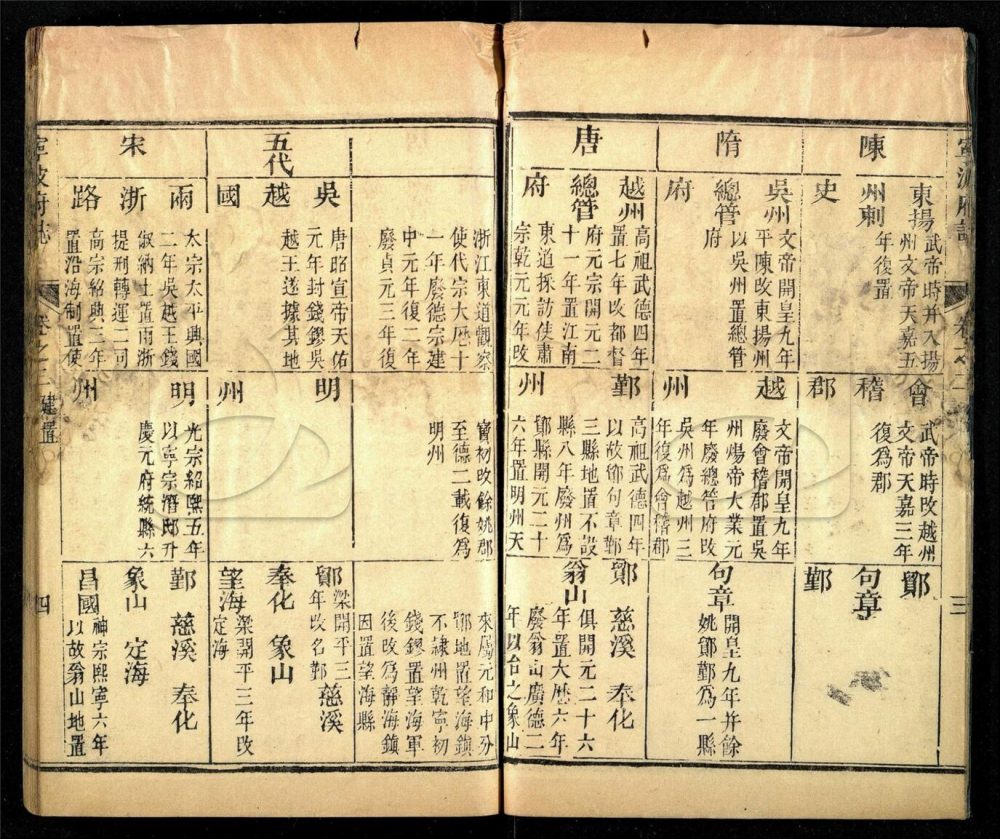 陳
東揚
武帝時并入揚
州文帝天嘉五
州刺
年復置
史
會
稽
郡
武帝時改越州
文帝天嘉三年
復爲郡
鄮
句章
鄞
隋
吳州
文帝開皇九年
平陳改東揚州
總管
以吳州置總管
府
府
越
州
文帝開皇九年
廢會稽郡置吳
州煬帝大業元
年廢總管府改
吳州爲越州三
年復爲會稽郡
句章
開皇九年并餘
姚鄮鄞爲一縣
唐
越州
高祖武德四年
置七年改都督
總管
府元宗開元二
十一年置江南
府
東道採訪使肅
宗乾元元年改
鄞
州
高祖武德四年
以故鄮句章鄞
三縣地置不設
縣八年廢州爲
鄮縣開元二十
六年置明州天
鄮 慈溪 奉化
翁山
俱開元二十六
年置大曆六年
廢翁山廣德二
年以台之象山
三
浙江東道觀察
使代宗大曆十
一年廢德宗建
中元年復二年
廢貞元三年復
寶初改餘姚郡
至德二載復爲
明州
來屬元和中分
鄮地置望海鎮
不隷州乾寧初
錢鏐置望海軍
後改爲靜海鎮
因置望海縣
五代
吳
越
國
唐昭宣帝天佑
元年封錢鏐吳
越王遂據其地
明
州
鄮
梁開平三
年改名鄞
慈溪
奉化 象山
望海
梁開平三年改
定海
宋
兩
浙
路
太宗太平興國
二年吳越王錢
俶納土置兩浙
提刑轉運二司
高宗紹興三年
置沿海制置使
明
州
光宗紹熙五年
以寧宗潛邸升
慶元府統縣六
鄞 慈溪 奉化
象山 定海
昌國
神宗熙寧六年
以故翁山地置
寧波府志
卷之二
建置
四